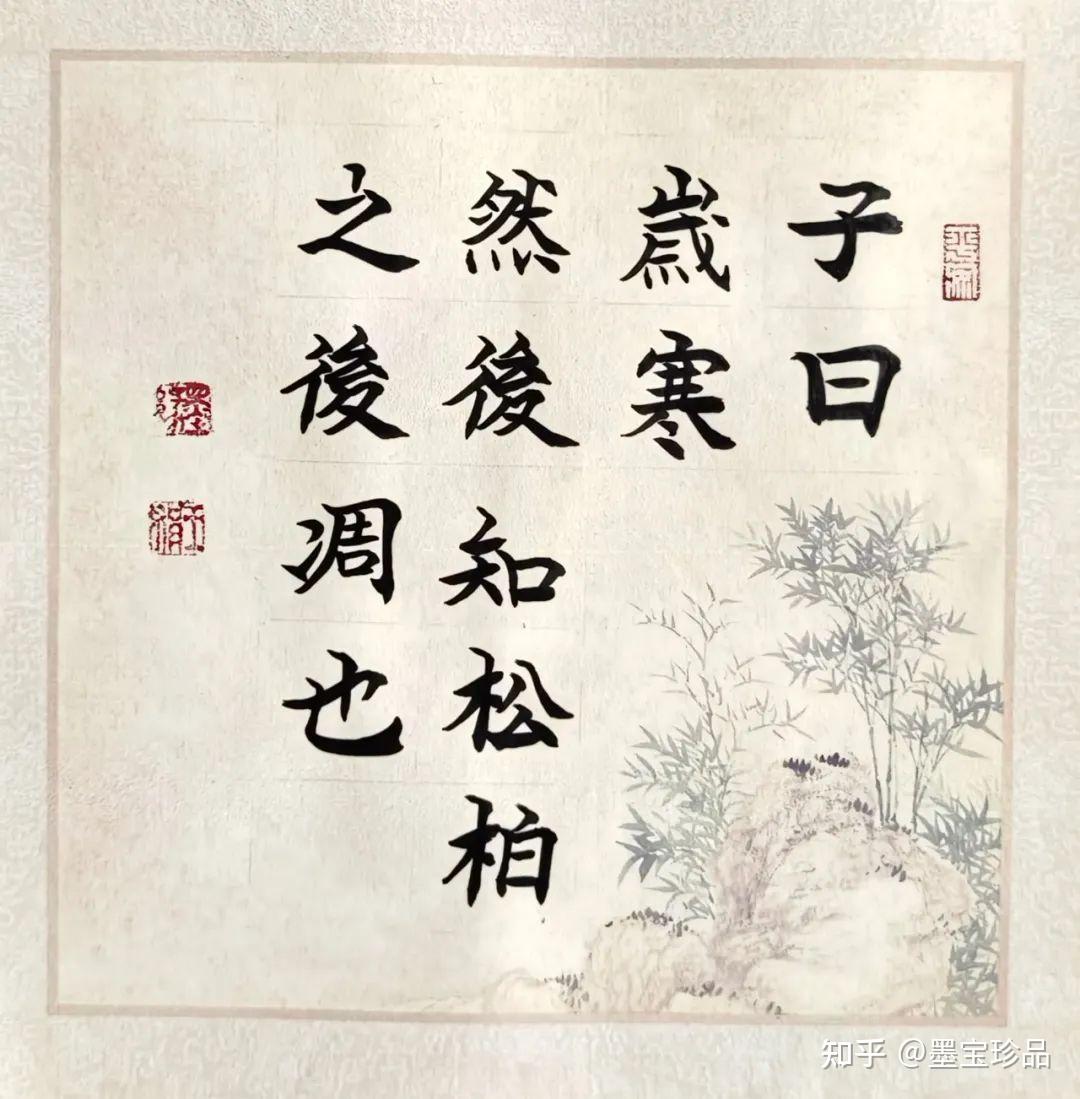 子曰
歲寒
然後知松柏
之後凋也
知乎 @墨宝珍品